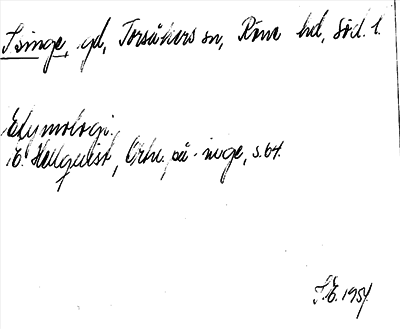 Isinge, gd, Torsåkers sn, Röno hd, Söd. l.
Etymologi.
E. Hellquist, Ortn. på -inge, s. 64.
F.E. 1951